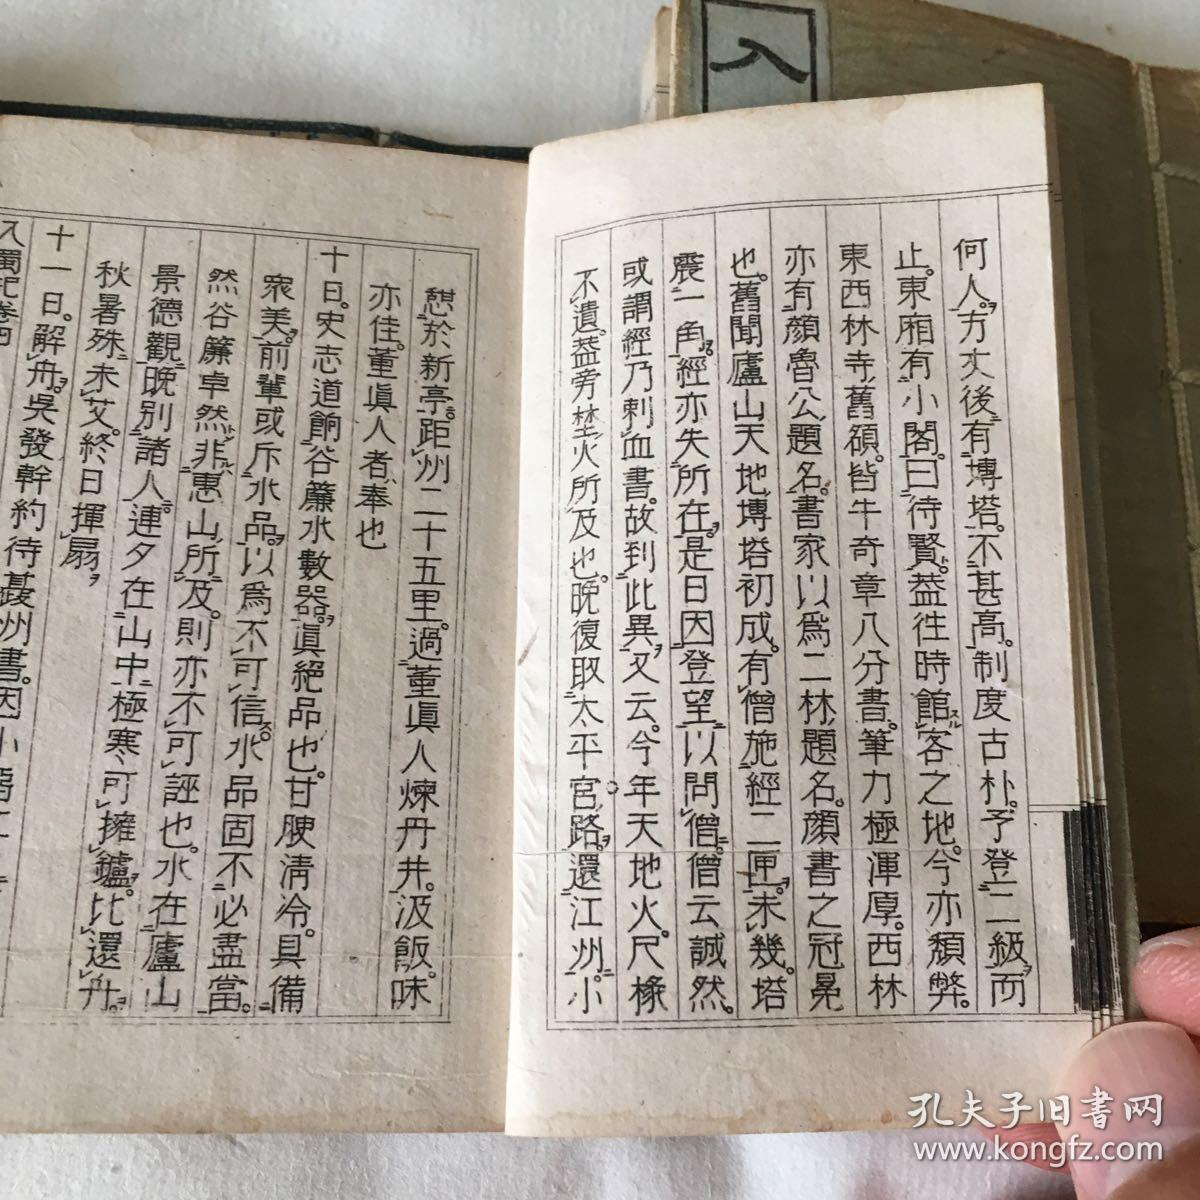 何人。方丈後有塼塔。不甚高。制度古朴。予登二級而
止。東廂有小閣。曰待賢。蓋往時館客之地。今亦頽弊。
東西林寺舊額。皆牛奇章八分書。筆力極渾厚。西林
亦有顏魯公題名。書家以為二林題名。顏書之冠冕
也。舊聞廬山天地塼塔初成。有僧施經二匣。未幾。塔
震一角。經亦失所在。是日因登望以問僧。僧云誠然。
或謂經乃刺血書。故到此異。又云。今年天地火。尺椽
不遺。蓋旁埜火所及也。晚復取太平宮路。還江州。小
憩於新亭。距州二十五里。過董眞人煉丹井。汲飯。味
亦佳。董眞人者奉也
十日。史志道餉谷簾水數器。眞絕品也。甘腴清冷。具備
衆美。前輩或斥水品。以為不可信。水品固不必盡當。
然谷簾卓然。非惠山所及。則亦不可誣也。水在廬山
景德觀。晚別諸人。連夕在山中。極寒可擁鑪。比還舟。
秋暑殊未艾。終日揮扇
十一日。解舟。吳發幹約待夔州書。因小
入蜀記卷四
入
孔夫子旧书网
www.kongfz.com